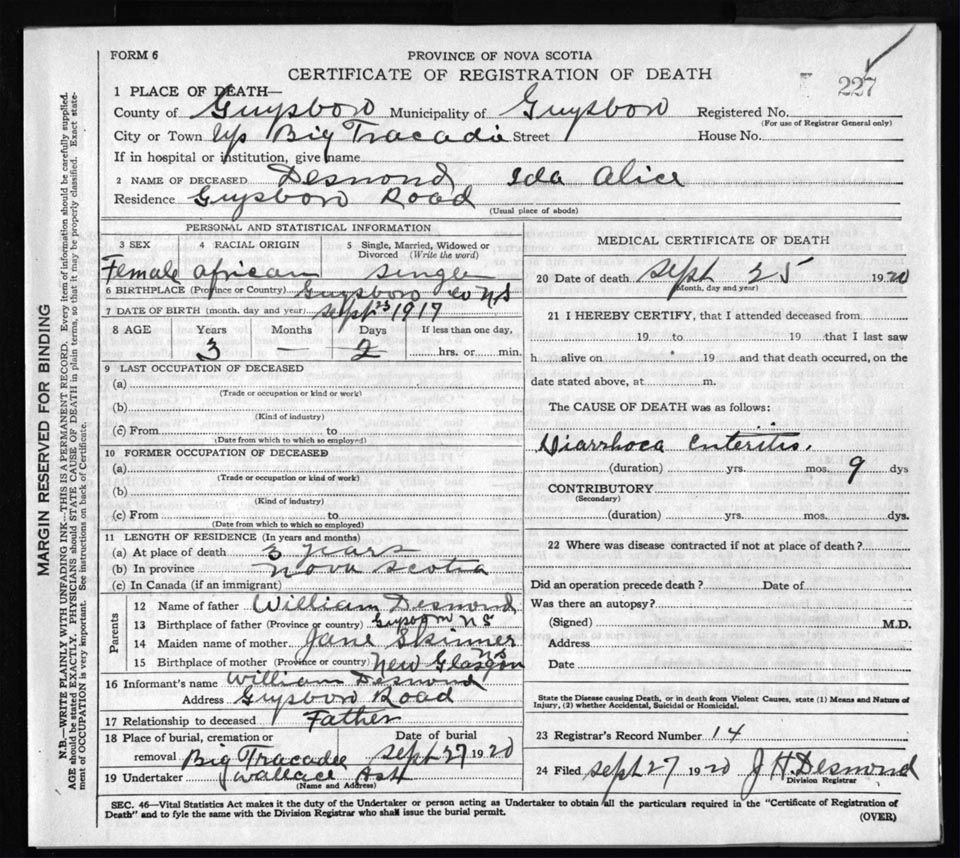 FORM 6
PROVINCE OF NOVA SCOTIA
CERTIFICATE OF REGISTRATION OF DEATH
227
1 PLACE OF DEATH—
County of Guysboro Municipality of Guysboro Registered No.
(For use of Registrar General only)
City or Town Up Big Tracadie Street House No.
If in hospital or institution, give name
2 NAME OF DECEASED Desmond Ida Alice
Residence Guysboro Road
(Usual place of abode)
PERSONAL AND STATISTICAL INFORMATION
3 SEX 4 RACIAL ORIGIN 5 Single, Married, Widowed or Divorced (Write the word)
Female african single
6 BIRTHPLACE (Province or Country) Guysboro Co N S
7 DATE OF BIRTH (month, day and year) Sept 23 1917
8 AGE Years Months Days If less than one day,
3 — 2 hrs. or min.
9 LAST OCCUPATION OF DECEASED
(a)
(Trade or occupation or kind or work)
(b)
(Kind of industry)
(c) From to
(Date from which to which so employed)
10 FORMER OCCUPATION OF DECEASED
(a)
(Trade or occupation or kind of work)
(b)
(Kind of industry)
(c) From to
(Date from which to which so employed)
11 LENGTH OF RESIDENCE (In years and months)
(a) At place of death 3 years
(b) In province Nova Scotia
(c) In Canada (if an immigrant)
Parents
12 Name of father William Desmond
13 Birthplace of father (Province or country) Guysboro N S
14 Maiden name of mother Jane Skinner
15 Birthplace of mother (Province or country) New Glasgow N S
16 Informant's name William Desmond
Address Guysboro Road
17 Relationship to deceased Father
18 Place of burial, cremation or removal Date of burial
Big Tracadie Sept 27 1920
19 Undertaker Wallace Ash
(Name and Address)
MEDICAL CERTIFICATE OF DEATH
20 Date of death Sept 25 1920
(Month, day and year)
21 I HEREBY CERTIFY, that I attended deceased from
19 to 19 that I last saw
h alive on 19 and that death occurred, on the
date stated above, at m.
The CAUSE OF DEATH was as follows:
Diarrhoea Enteritis.
(duration) yrs. mos. 9 dys
CONTRIBUTORY
(Secondary)
(duration) yrs. mos. dys.
22 Where was disease contracted if not at place of death?
Did an operation precede death? Date of
Was there an autopsy?
(Signed) M.D.
Address
Date
State the Disease causing Death, or in death from Violent Causes, state (1) Means and Nature of
Injury, (2) whether Accidental, Suicidal or Homicidal.
23 Registrar's Record Number 14
24 Filed Sept 27 1920 J H. Desmond
Division Registrar
SEC. 46—Vital Statistics Act makes it the duty of the Undertaker or person acting as Undertaker to obtain all the particulars required in the "Certificate of Registration of
Death" and to fyle the same with the Division Registrar who shall issue the burial permit.
(OVER)
MARGIN RESERVED FOR BINDING
N.B.—WRITE PLAINLY WITH UNFADING INK—THIS IS A PERMANENT RECORD. Every item of information should be carefully supplied.
AGE should be stated EXACTLY. PHYSICIANS should STATE CAUSE OF DEATH in plain terms, so that it may be properly classified. Exact state-
ment of OCCUPATION is very important. See instructions on back of Certificate.